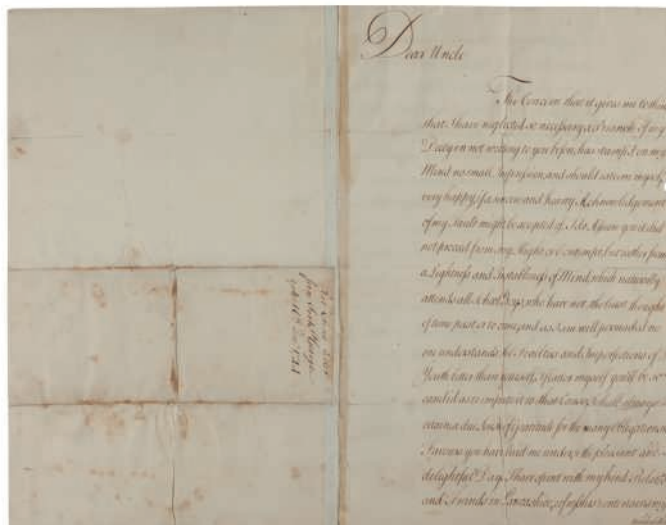 Dear Uncle
The Concern that it gives me to think
that I have neglected so necessary a Branch of my
Duty in not writing to you before, has stamp'd on my
Mind no small Impression, and should esteem myself
very happy if a sincere and hearty Acknowledgement
of my Fault might be accepted of, I do Assure you it did
not proceed from any Slight or Contempt, but rather from
a Lightness and Instability of Mind, which naturally
attends all School Boys, who have not the least thought
of time past or to come, and as I am well persuaded no
one understands the Frailties and Imperfections of
Youth better than yourself, I flatter myself you'll be so
candid as to impute it to that Cause, I shall always
retain a due Sense of Gratitude for the many Obligations
you have laid me under, the pleasant and
delightful Days I have spent with my kind Relations
and Friends in Lancashire, refreshes